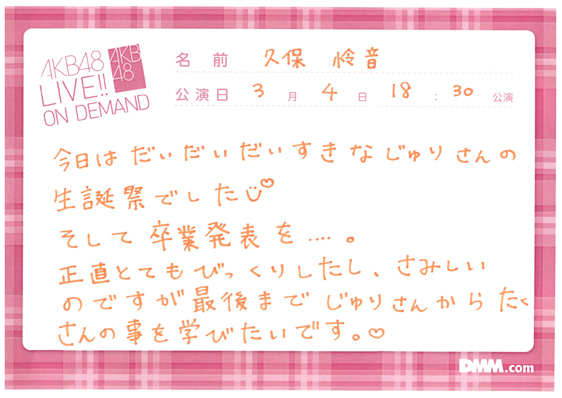 AKB48
LIVE!!
ON DEMAND
AKB
48
名前 久保 怜音
公演日 3月4日 18:30公演
今日はだいだいだいすきなじゅりさんの
生誕祭でした
そして卒業発表を....。
正直とてもびっくりしたし、さみしい
のですが最後までじゅりさんからたく
さんの事を学びたいです。
DMM.com